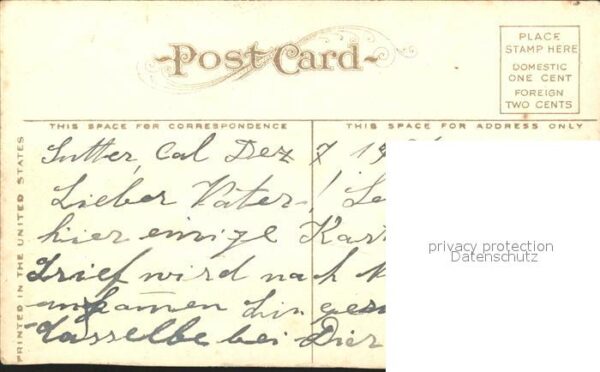 Post Card
PLACE
STAMP HERE
DOMESTIC
ONE CENT
FOREIGN
TWO CENTS
THIS SPACE FOR CORRESPONDENCE
THIS SPACE FOR ADDRESS ONLY
PRINTED IN THE UNITED STATES
Sutter, Cal Dez 7 19
Lieber Vater!
hier einige Kart
Brief wird nach
bin gesu
dasselbe bei Dier
privacy protection
Datenschutz